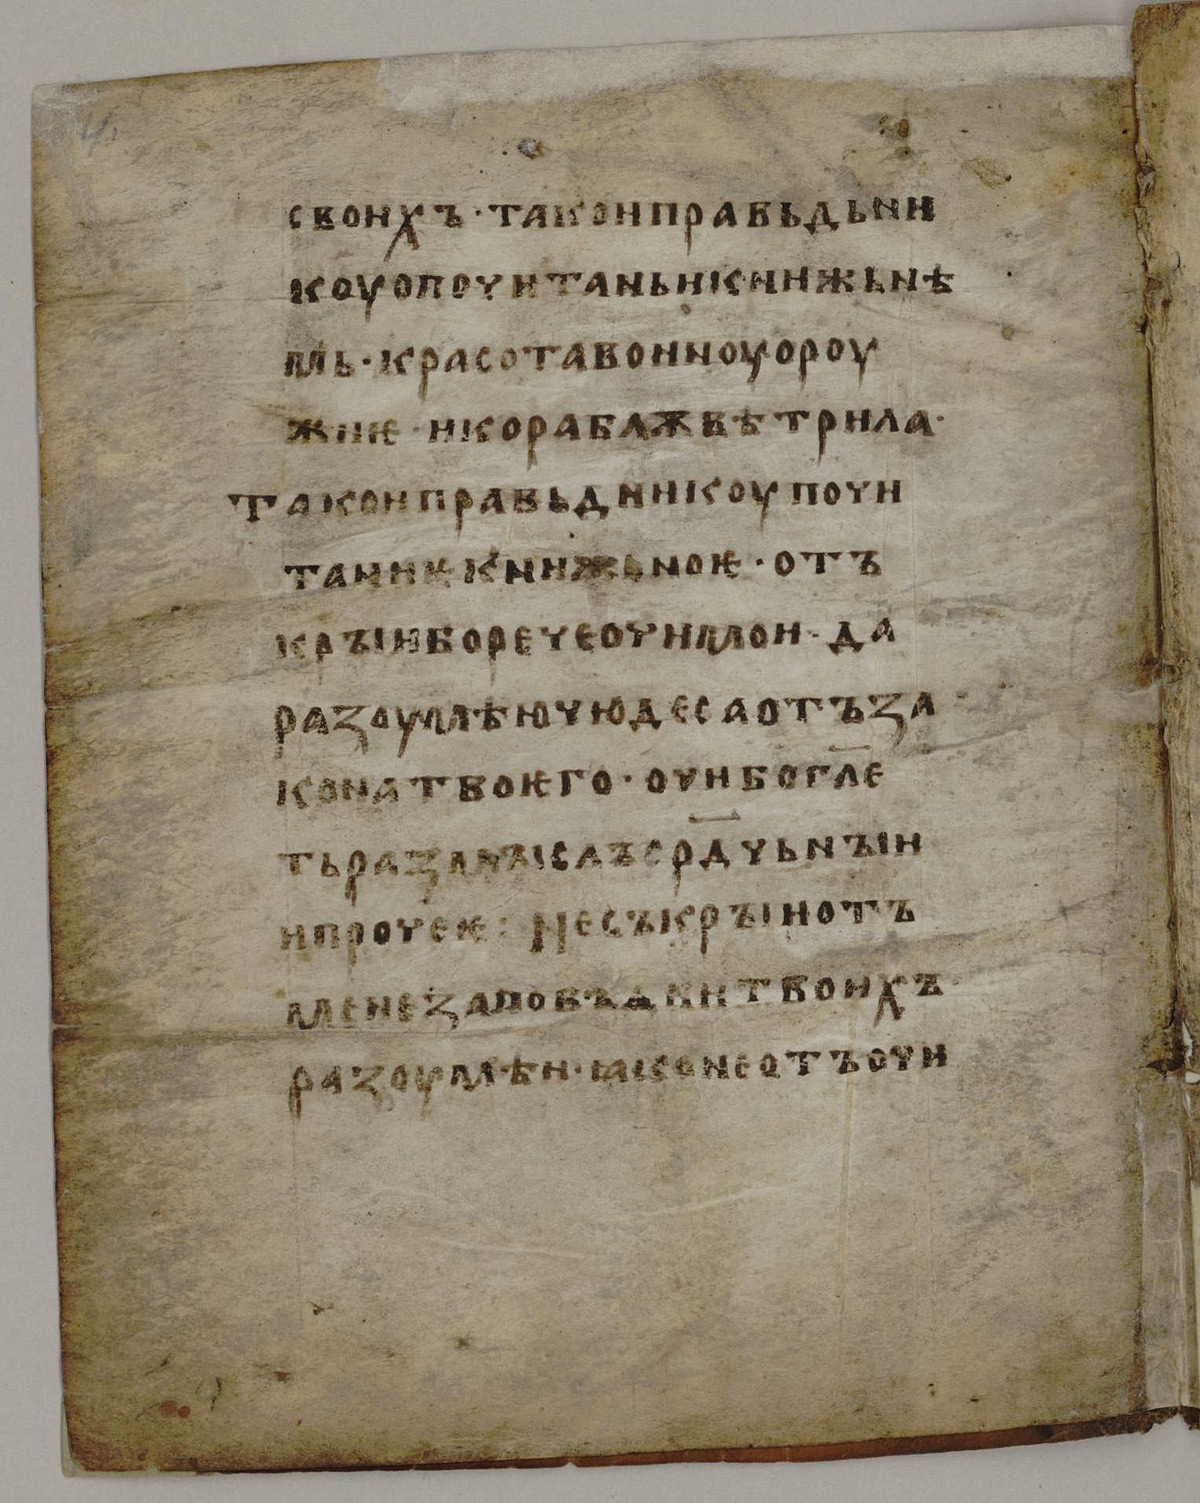 своихъ· такоиправьдьни
коуопочитаньикнижьнѣ
мь· красотавоиноуороу
жиѥ· икораблѫвѣтрила·
такоиправьдникоупочи
таниѥкнижьноѥ· отъ
кръıиборечеочимои· да
разоумѣючюдесаотъза
конатвоѥго· очибоглє
тьразмъıслъсрдчьнъıи
ипрочеѥ: Несъкръıиотъ
менезаповѣдиитвоихъ·
разоумѣи· ꙗконеотъочи